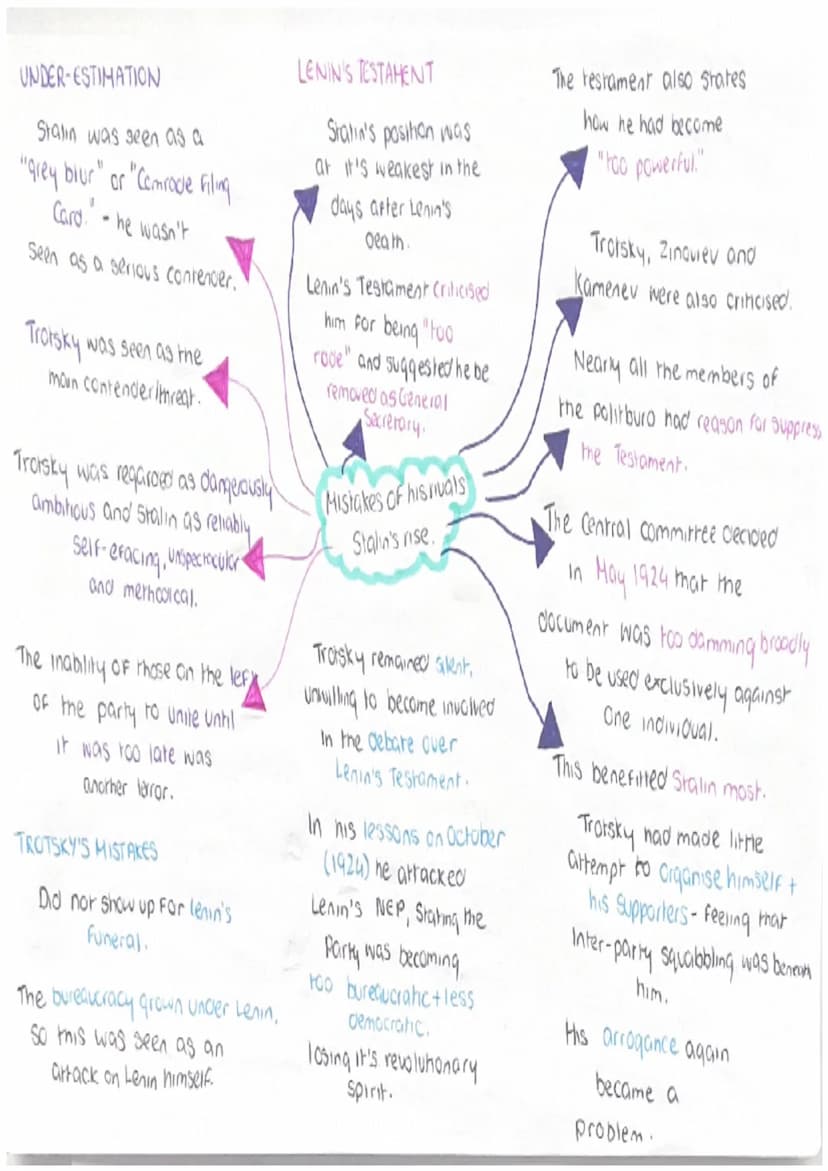 UNDER-ESTIMATION
Stalin was seen as a
"grey blur" or "Comrade Filing
Card." - he wasn't
seen as a serious contender.
Trotsky was seen as the
main contender/threat.
Trotsky was regarded as dangerously
ambitious and Stalin as reliably
self-efacing, unspectacular
and methodical.
The inability of those on the left
of the party to unite until
it was too late was
another error.
TROTSKY'S MISTAKES
Did not show up for Lenin's
funeral.
The bureaucracy grown under Lenin,
so this was seen as an
attack on Lenin himself.
LENIN'S TESTAMENT
Stalin's position was
at it's weakest in the
days after Lenin's
death.
Lenin's Testament criticised
him for being "too
rude" and suggested he be
removed as General
Secretary.
Mistakes of his rivals
Stalin's rise.
Trotsky remained silent,
unwilling to become involved
in the debate over
Lenin's Testament.
In his lessons on October
(1924) he attacked
Lenin's NEP, stating the
Party was becoming
too bureaucratic + less
democratic.
losing it's revolutionary
spirit.
The testament also states
how he had become
"too powerful."
Trotsky, Zinoviev and
Kamenev were also criticised.
Nearly all the members of
the politburo had reason for suppress
the Testament.
The Central Committee decided
in May 1924 that the
document was too damming broadly
to be used exclusively against
one individual.
This benefitted Stalin most.
Trotsky had made little
attempt to organise himself +
his supporters - feeling that
inter-party squabbling was beneath
him.
His arrogance again
became a
problem.